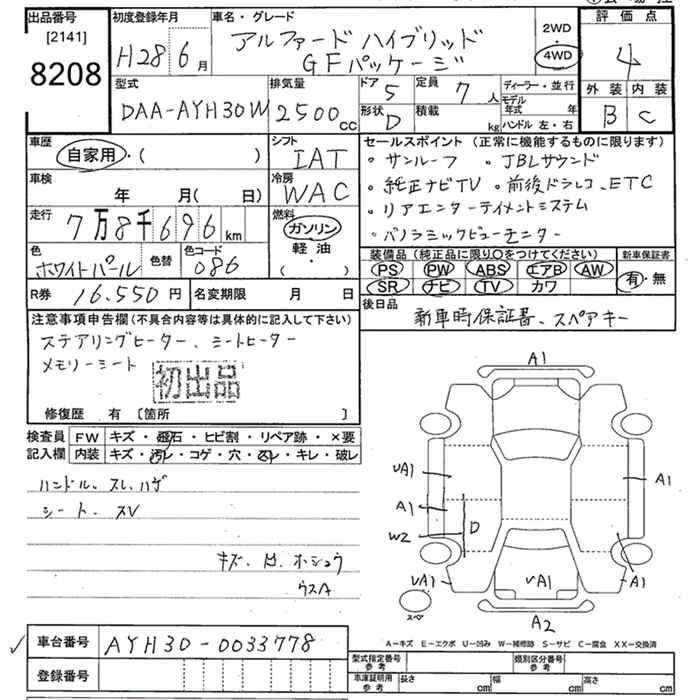 出品番号
[2141]
8208
初度登録年月
H28年 6月
車名・グレード
アルファード ハイブリッド
GFパッケージ
2WD
4WD
評価点
4
外装 内装
B C
型式
DAA-AYH30W
排気量
2500cc
ドア 5
形状 D
定員 7人
積載 kg
ディーラー・並行
モデル年式 年
ハンドル 左・右
車歴
自家用・( )
シフト
IAT
車検
年 月( 日)
冷房
WAC
走行
7万8千696km
燃料
ガソリン
軽・油
( ・ )
色
ホワイトパール
色替
色コード
086
R券 16,550円
名変期限 月 日
セールスポイント (正常に機能するものに限ります)
・サンルーフ ・JBLサウンド
・純正ナビTV ・前後ドラレコ、ETC
・リアエンターテイメントシステム
・パノラミックビューモニター
装備品 (純正品に限り○をつけてください)
PS PW ABS エアB AW
SR ナビ TV カワ
新車保証書
有・無
後日品
新車時保証書、スペアキー
注意事項申告欄(不具合内容等は具体的に記入して下さい)
ステアリングヒーター、シートヒーター
メモリーシート
初出品
修復歴 有 [箇所 ]
検査員 FW キズ・飛石・ヒビ割・リペア跡・×要
記入欄 内装 キズ・汚レ・コゲ・穴・スレ・キレ・破レ
ハンドル、スレ、ハゲ
シート、スレ
キズ、凹、ホシュウ
ウスA
A1
UA1
A1
W2
D
A1
UA1
UA1
A1
A2
スペア
A-キズ E-エクボ U-凹み W-補修跡 S-サビ C-腐食 XX-交換済
車台番号 AYH30-0033778
登録番号
型式指定番号
参考
類別区分番号
参考
車庫証明用
参考
長さ cm 幅 cm 高さ cm